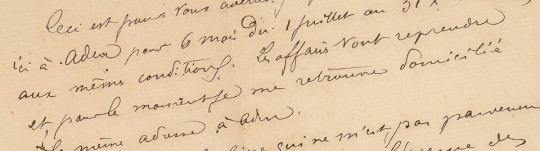 Ceci est pour vous
ici à Aden pour 6 moi du 1 juillet au 31 X
aux mêmes conditions. Les affaires vont reprendre
et pour le moment je me retrouve domicilié
même adresse, à Aden.
qui ne m'est pas parvenu